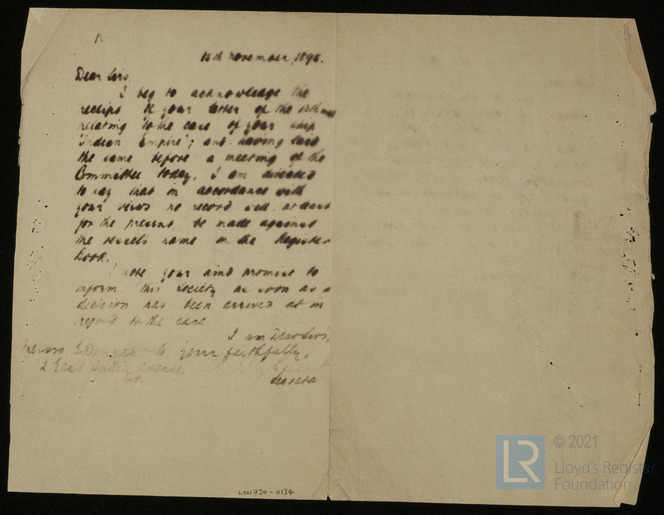 15th November, 1895.
Dear Sirs,
I beg to acknowledge the
receipt of your letter of the 13th
relating to the case of your ship
"Indian Empire"; and having laid
the same before a meeting of the
Committee today, I am directed
to say that in accordance with
your views no record will at least
for the present be made against
the vessel's name in the Register
Book.
I note your kind promise to
inform this Society as soon as a
decision has been arrived at in
regard to the case
I am Dear Sirs,
Messrs G Duncan & Co Yours faithfully,
2 East India Avenue
Secreta
LON730-0134
© 2021
LR
Lloyd's Register
Foundation